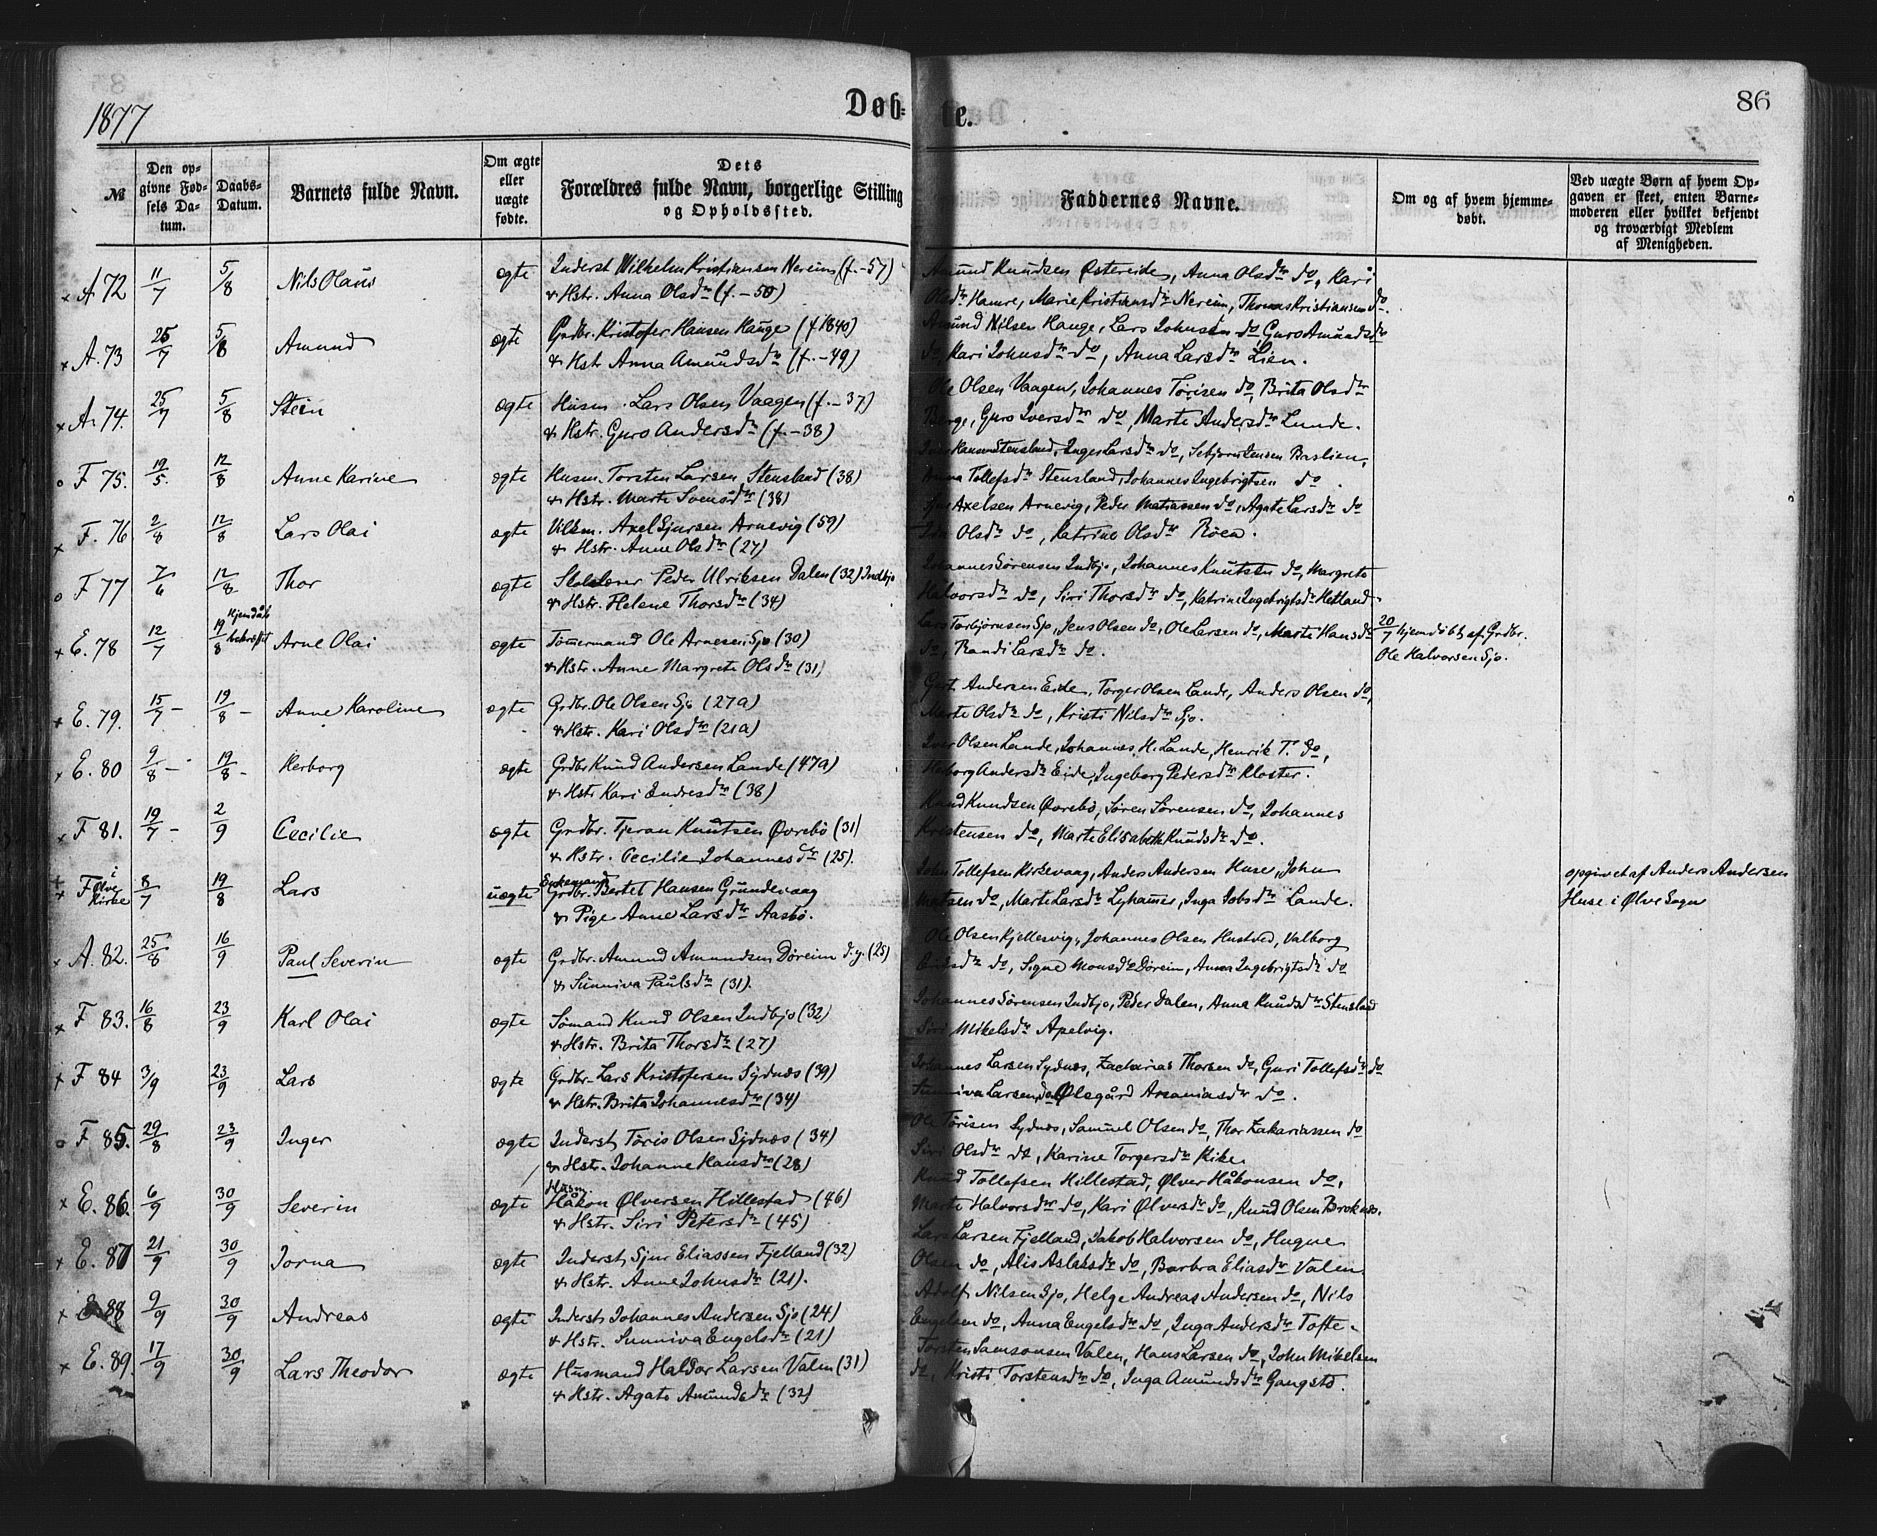 1877
Døb-
te.
86
№
Den op-
givne Fød-
sels Da-
tum.
Daabs-
Datum.
Barnets fulde Navn.
Om ægte
eller
uægte
fødte.
Dets
Forældres fulde Navn, borgerlige Stilling
og Opholdssted.
Faddernes Navne.
Om og af hvem hjemme-
døbt.
Ved uægte Børn af hvem Op-
gaven er skeet, enten Barne-
moderen eller hvilket bekjendt
og troværdigt Medlem
af Menigheden.
× A 72 11/7 5/8 Nils Olaus ægte Inderst Wilhelm Kristiansen Nereim (f. -57)
& Hstr. Anna Olsdtr (f. -50)
Amund Knudsen Østereide, Anna Olsdtr do, Kari
Olsdtr Hamre, Marie Kristiansdtr Nereim, Thomas Kristiansen do.
× A. 73 25/7 5/8 Amund ægte Grdbr. Kristofer Hansen Hauge (f 1840)
& Hstr Anna Amundsdtr (f. -49)
Amund Nilsen Hauge, Lars Johnsen do Guro Amundsdtr
do, Kari Johnsdtr do, Anna Larsdtr Lien.
× A. 74. 25/7 5/8 Stein ægte Husm. Lars Olsen Vaagen (f. -37)
& Hstr. Guro Andersdtr (f. -38)
Ole Olsen Vaagen, Johannes Tørisen do, Brita Olsdtr
Berge, Guro Iversdtr do, Marte Andersdtr Lunde.
o F 75. 19/5. 12/8 Anne Karine ægte Husm. Torsten Larsen Stensland (38)
& Hstr. Marte Svensdtr (38)
Stensland, Inger Larsdtr do, Jensen Baslien,
Anna Tollefsdtr Stensland, Johannes Ingebrigtsen do.
× F. 76 2/8 12/8 Lars Olai ægte Vilkm. Axel Sjursen Arnevig (59)
& Hstr. Anne Olsdtr (27)
Sjur Axelsen Arnevig, Peder Matiassen do, Agate Larsdtr do
Olsdtr do, Katrine Olsdtr Røen.
o F 77 7/6 12/8 Thor ægte Skolelærer Peder Ulriksen Dalen (32) Indbjo
& Hstr. Helene Thorsdtr (34)
Johannes Sørensen Indbjo, Johannes Knutsen do, Margrete
Halvorsdtr do, Siri Thorsdtr do, Katrine Ingebrigtsdtr Hetland
× E. 78 12/7 19/8 Hjemdåb bekræftet Arne Olai ægte Tømmermand Ole Arnesen Sjo (30)
& Hstr. Anne Margrete Olsdtr (31)
Lars Torbjørnsen Sjo, Jens Olsen do, Ole Larsen do, Marte Hansdtr
do, Randi Larsdtr do.
20/7 hjemdøbt af Grdbr.
Ole Halvorsen Sjo.
× E. 79. 15/7 - 19/8 - Anne Karoline ægte Grdbr. Ole Olsen Sjo (27a)
& Hstr. Kari Olsdtr (21a)
Andersen Eide, Torger Olsen Lande, Anders Olsen do,
Marte Olsdtr do, Kristi Nilsdtr Sjo.
× E. 80 9/8 - 19/8 - Herborg ægte Grdbr Knud Andersen Lande (47a)
& Hstr Kari Endresdtr (38)
Iver Olsen Lande, Johannes H. Lande, Henrik T. do,
Herborg Andersdtr Eide, Ingeborg Pedersdtr Kloster.
× F 81. 19/7 - 2/9 Cecilie ægte Grdbr. Tjeran Knutsen Øvrebø (31)
& Hstr. Cecilie Johannesdtr (25).
Knud Knudsen Øvrebø, Søren Sørensen do, Johannes
Kristensen do, Marte Elisabeth Knudsdtr do.
× F i Ølve Kirke 8/7 19/8 Lars uægte Enkemand Grdbr. Bertel Hansen Grundevaag
& Pige Anne Larsdtr Aasbø.
John Tollefsen Kirkevaag, Anders Andersen Huse, John
Matsen do, Marte Larsdtr Lyhammer, Inga Jobsdtr Lande.
opgivet af Anders Andersen
Huse i Ølve Sogn
× A. 82. 25/8 16/9 Paul Severin ægte Grdbr. Amund Amundsen Døreim d.y. (25)
& Sunniva Paulsdtr (31).
Ole Olsen Kjellesvig, Johannes Olsen Hustved, Valborg
do, Signe Monsdtr Døreim, Anna Ingebrigtsdtr do
× F 83. 16/8 23/9 Karl Olai ægte Sømand Knud Olsen Indbjo (32)
& Hstr. Brita Thorsdtr (27)
Johannes Sørensen Indbjo, Peder Dalen, Anna Knudsdtr Stensland
Siri Mikelsdtr Apelvig.
× F 84 3/9 23/9 Lars ægte Grdbr- Lars Kristofersen Sydnæs (39)
& Hstr. Brita Johannesdtr (34)
Johannes Larsen Sydnæs, Zacharias Thorsen do, Guri Tollefsdtr do
Sunniva Larsen do, Ølegård Asaniasdtr do.
o F 85. 29/8 23/9 Inger ægte Inderst Tøris Olsen Sydnæs (34)
& Hstr. Johanne Hansdtr (28)
Ole Tørisen Sydnæs, Samuel Olsen do, Thor Zakariassen do
Siri Olsdtr do, Karine Torgersdtr Kike
× E. 86. 6/9 30/9 Severin ægte Husm. Håkon Ølversen Hillestad (46)
& Hstr. Siri Petersdtr (45)
Knud Tollefsen Hillestad, Ølver Håkonsen do,
Marte Halvorsdtr do, Kari Ølversdtr do, Knud Olsen Broknes.
× E. 87 21/9 30/9 Jorna ægte Inderst Sjur Eliassen Fjelland (32)
& Hstr. Anne Johnsdtr (21).
Lars Larsen Fjelland, Jakob Halvorsen do, Hugne
Olsen do, Alis Aslaksdtr do, Barbra Eliasdtr Valen
× E 88 9/9 30/9 Andreas ægte Inderst Johannes Andersen Sjo (24)
& Hstr. Sunniva Engelsdtr (21)
Adolf Nilsen Sjo, Helge Andreas Andersen do, Nils
Engelsen do, Anna Engelsdtr do, Inga Andersdtr Tofte.
× E. 89. 17/9 30/9 Lars Theodor ægte Husmand Haldor Larsen Valen (31)
& Hstr. Agate Amundsdtr (32)
Torsten Samsonsen Valen, Hans Larsen do, John Mikelsen
do, Kristi Torstensdtr do, Inga Amundsdtr Gangstø.